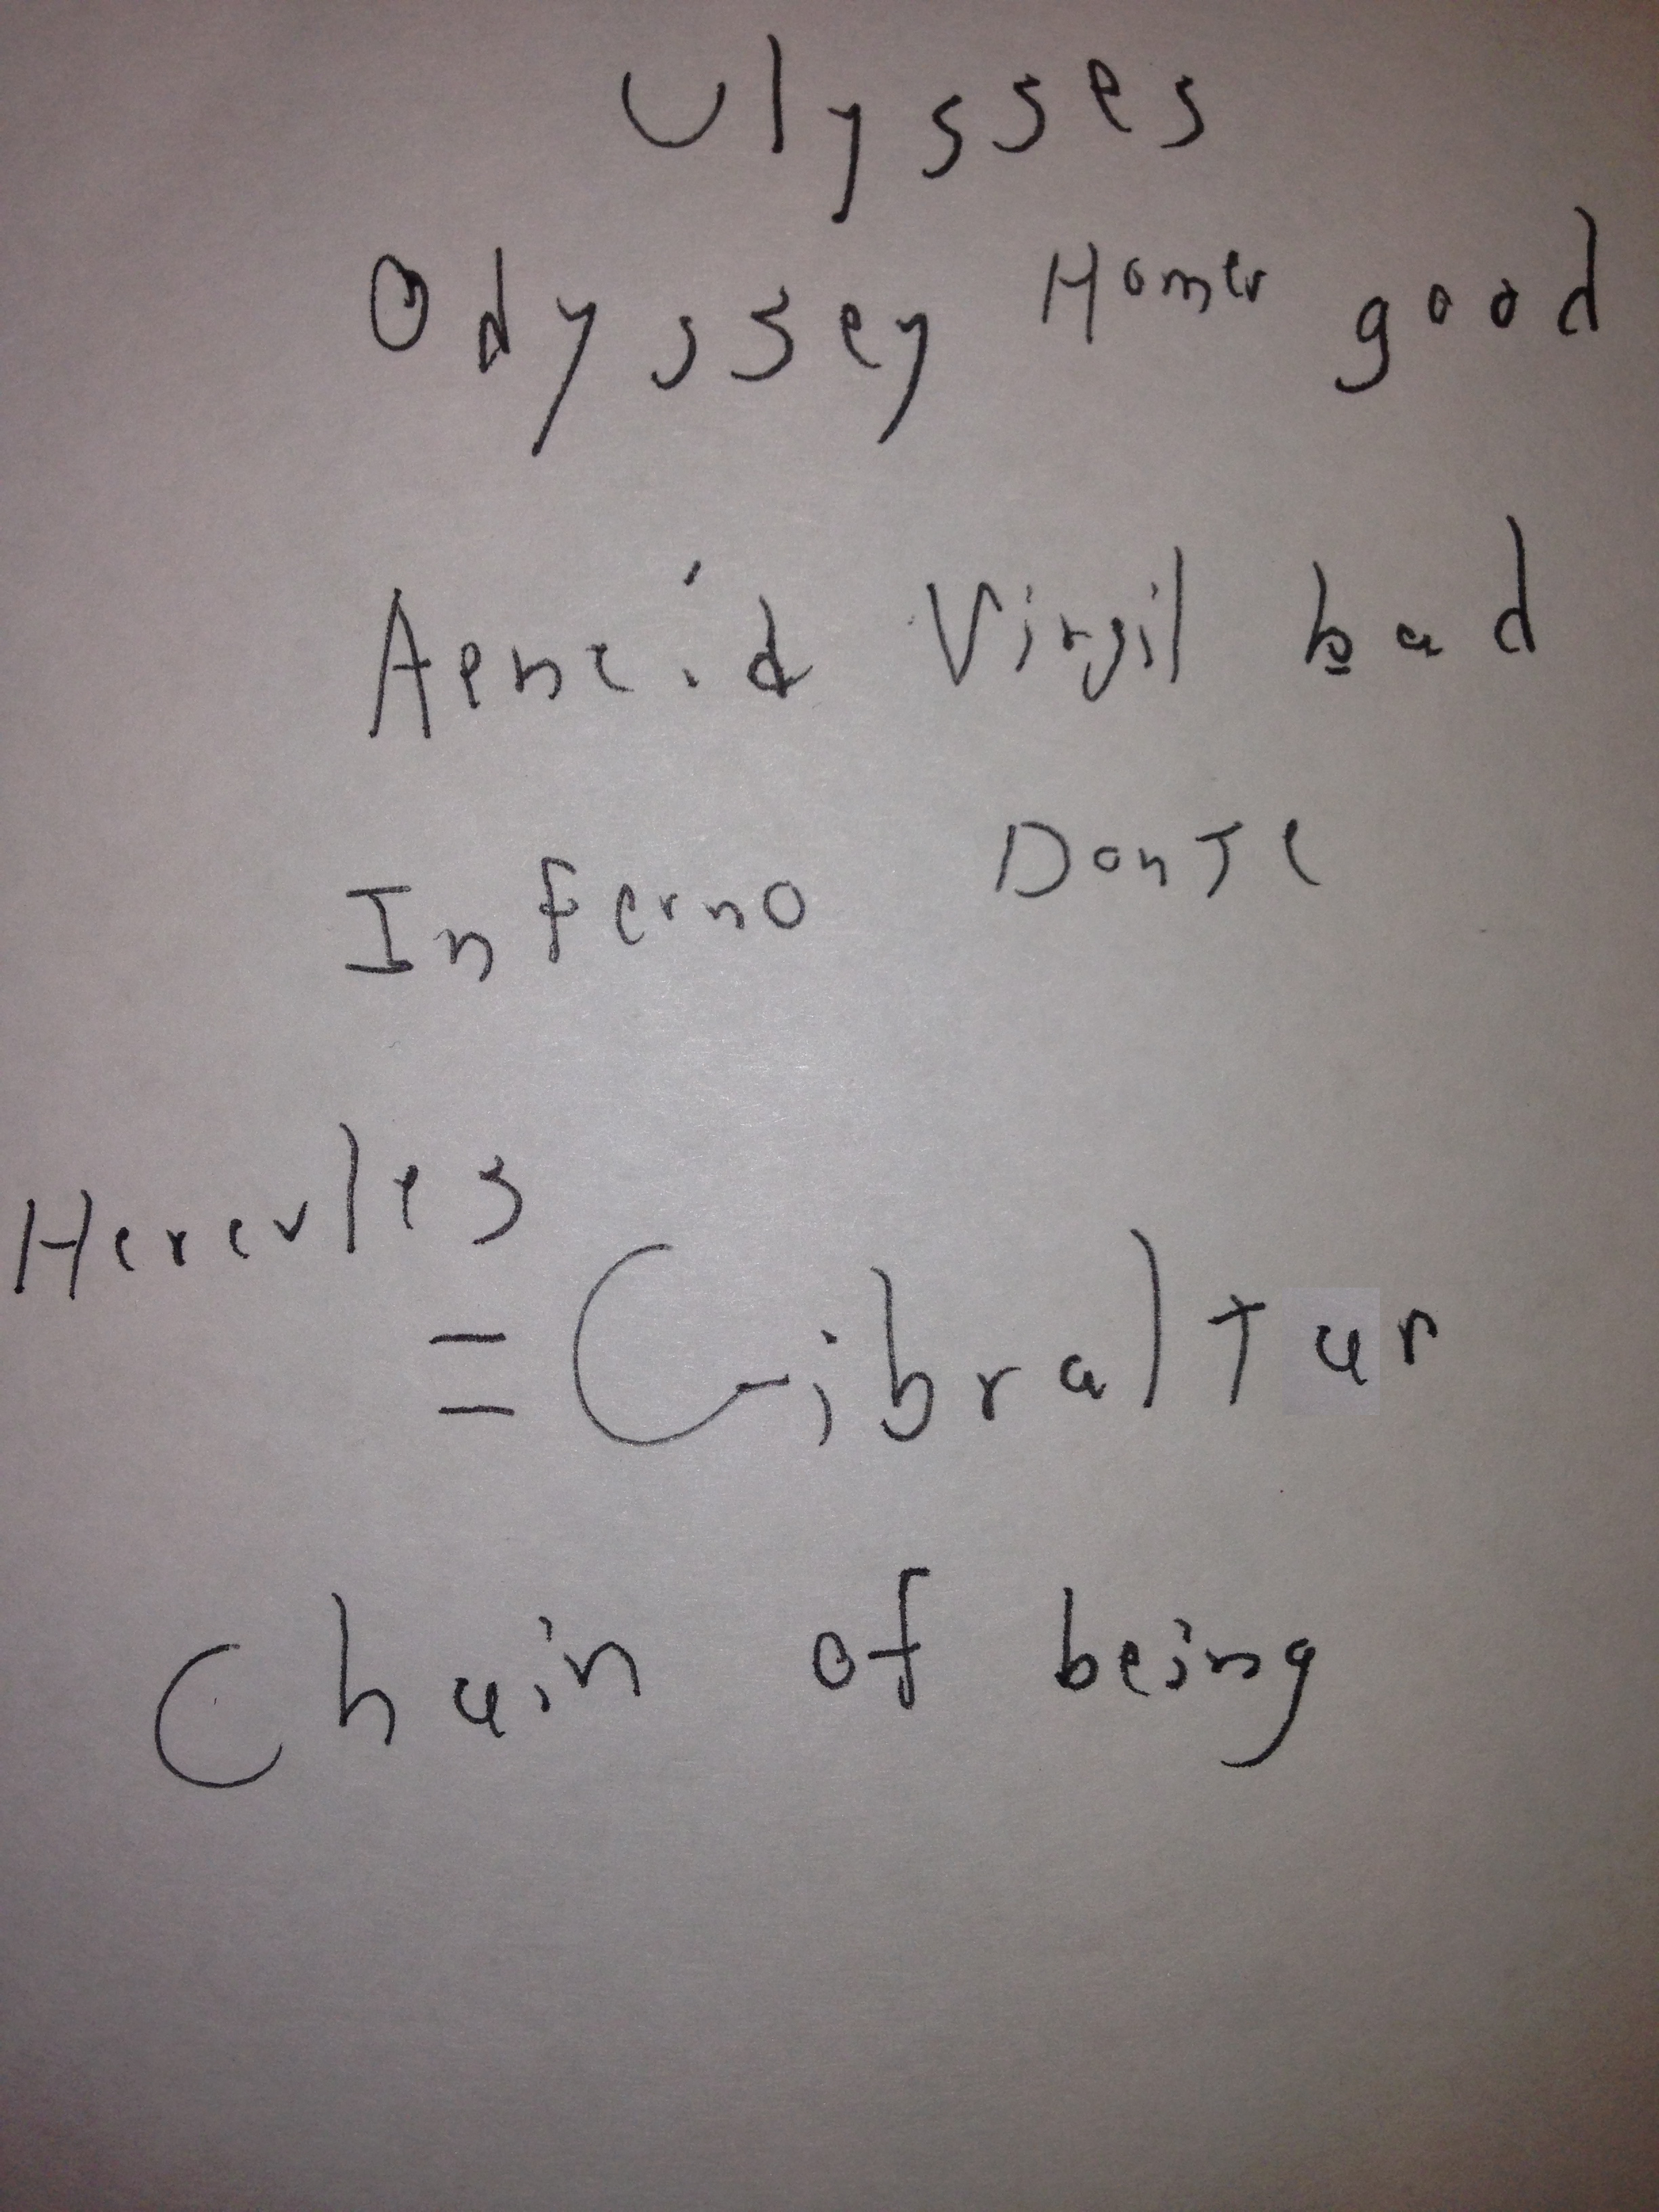 Ulysses
Odyssey Homer good
Aeneid Virgil bad
Inferno Dante
Hercules
= Gibraltar
Chain of being